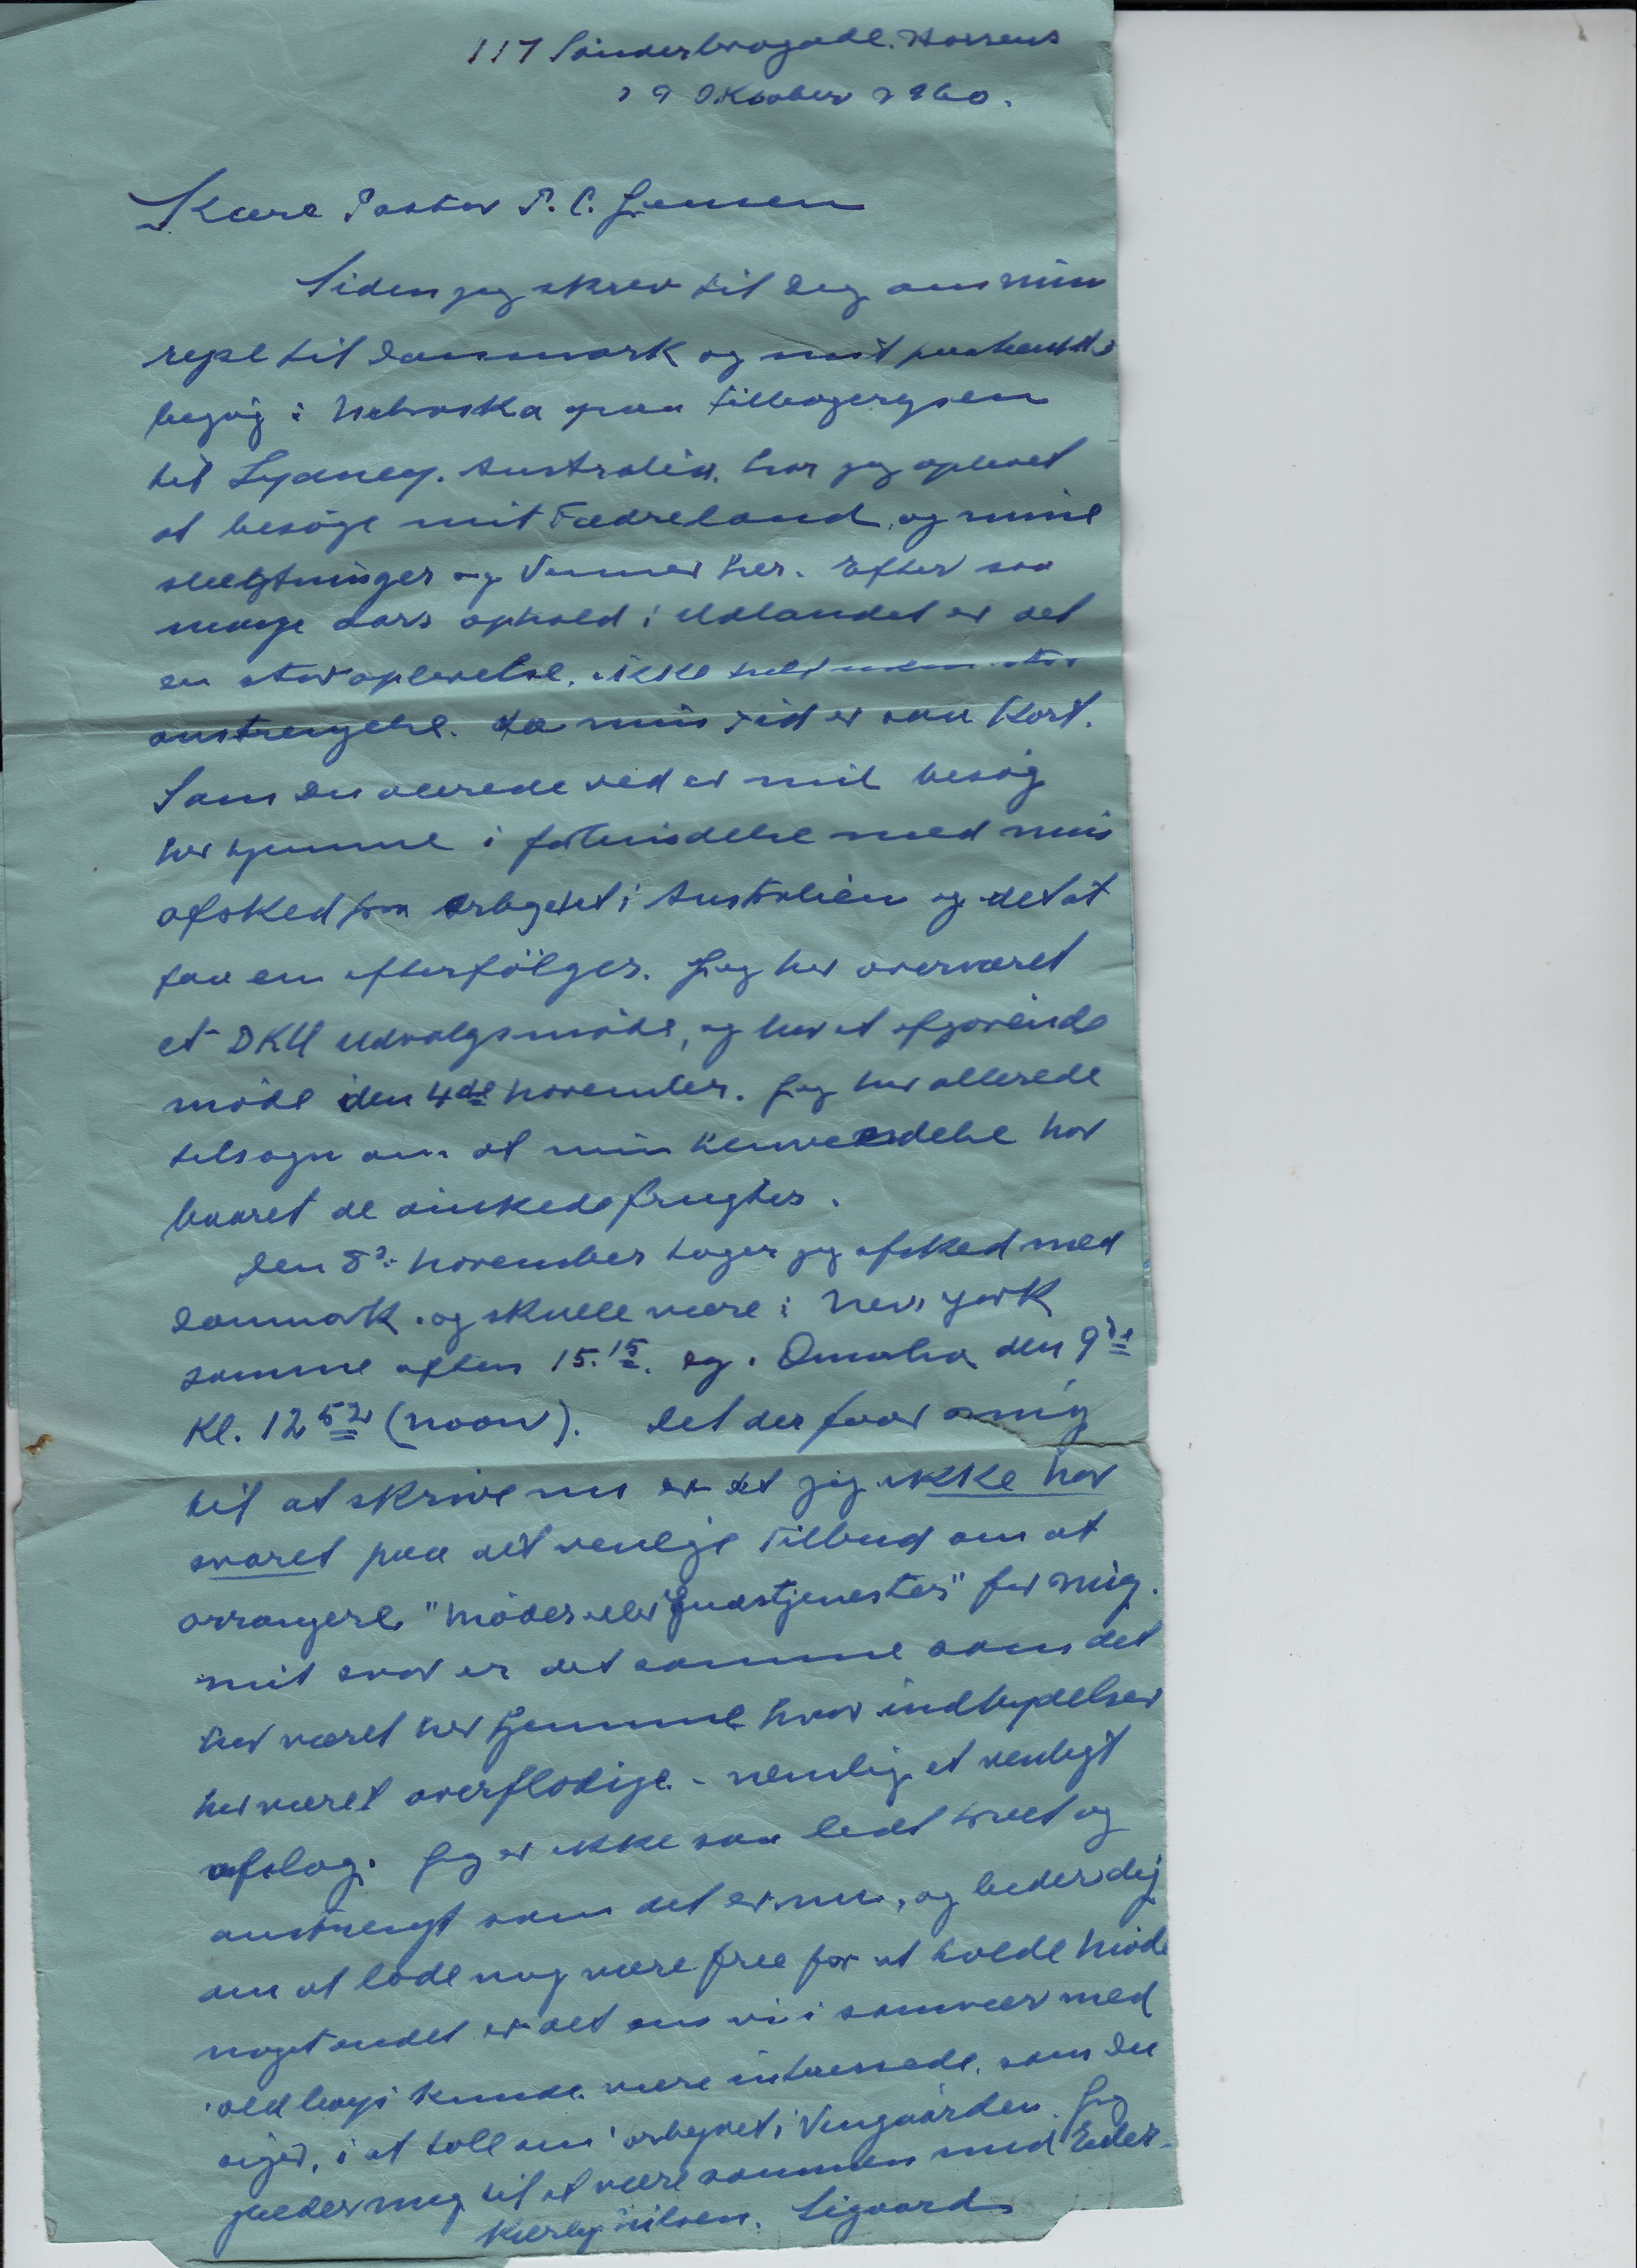 117 Sönderbrogade. Horsens
29 Oktober 1960.
Kære Pastor P. C. Jensen
Siden jeg skrev til Dig om min
rejse til Danmark og mit paatænkte
besøg i Nebraska paa tilbagerejsen
til Sydney. Australien. har jeg oplevet
at besöge mit Fædreland, og mine
slægtninger og Venner her. Efter saa
mange Aars ophold i Udlandet er det
en stor oplevelse. ikke helt uden stor
anstrengelse. da min Tid er saa Kort.
Som Du allerede ved er mit besög
her hjemme i forbindelse med min
afsked fra Arbejdet i Australien og det at
faa en efterfölger. Jeg har overværet
et DKU Udvalgsmöde, og har et afgørende
möde den 4de November. Jeg har allerede
tilsagn om at min henvendelse har
baaret de önskede frugter.
Den 8de November tager jeg afsked med
Danmark. og skulle være i New York
samme aften 15.15. og i Omaha den 9de
Kl. 12 52 (noon). Det der faar mig
til at skrive nu er at jeg ikke har
svaret paa dit venlige Tilbud om at
arrangere "Möder eller Gudstjenester" for mig.
mit svar er det samme som det
har været her hjemme hvor indbydelser
har været overflödige - nemlig et venligt
afslag. Jeg er ikke saa ledt træt og
anstrengt som det er nu, og beder dig
om at lade mig være free for at holde Möde
noget andet er det om vi i samvær med
'old boys' kunde være interessede, som Du
siger, i at tale om 'arbejdet i Vingaarden'. Jeg
glæder mig til at være sammen med Eder.
Kærlig hilsen. Sigaard